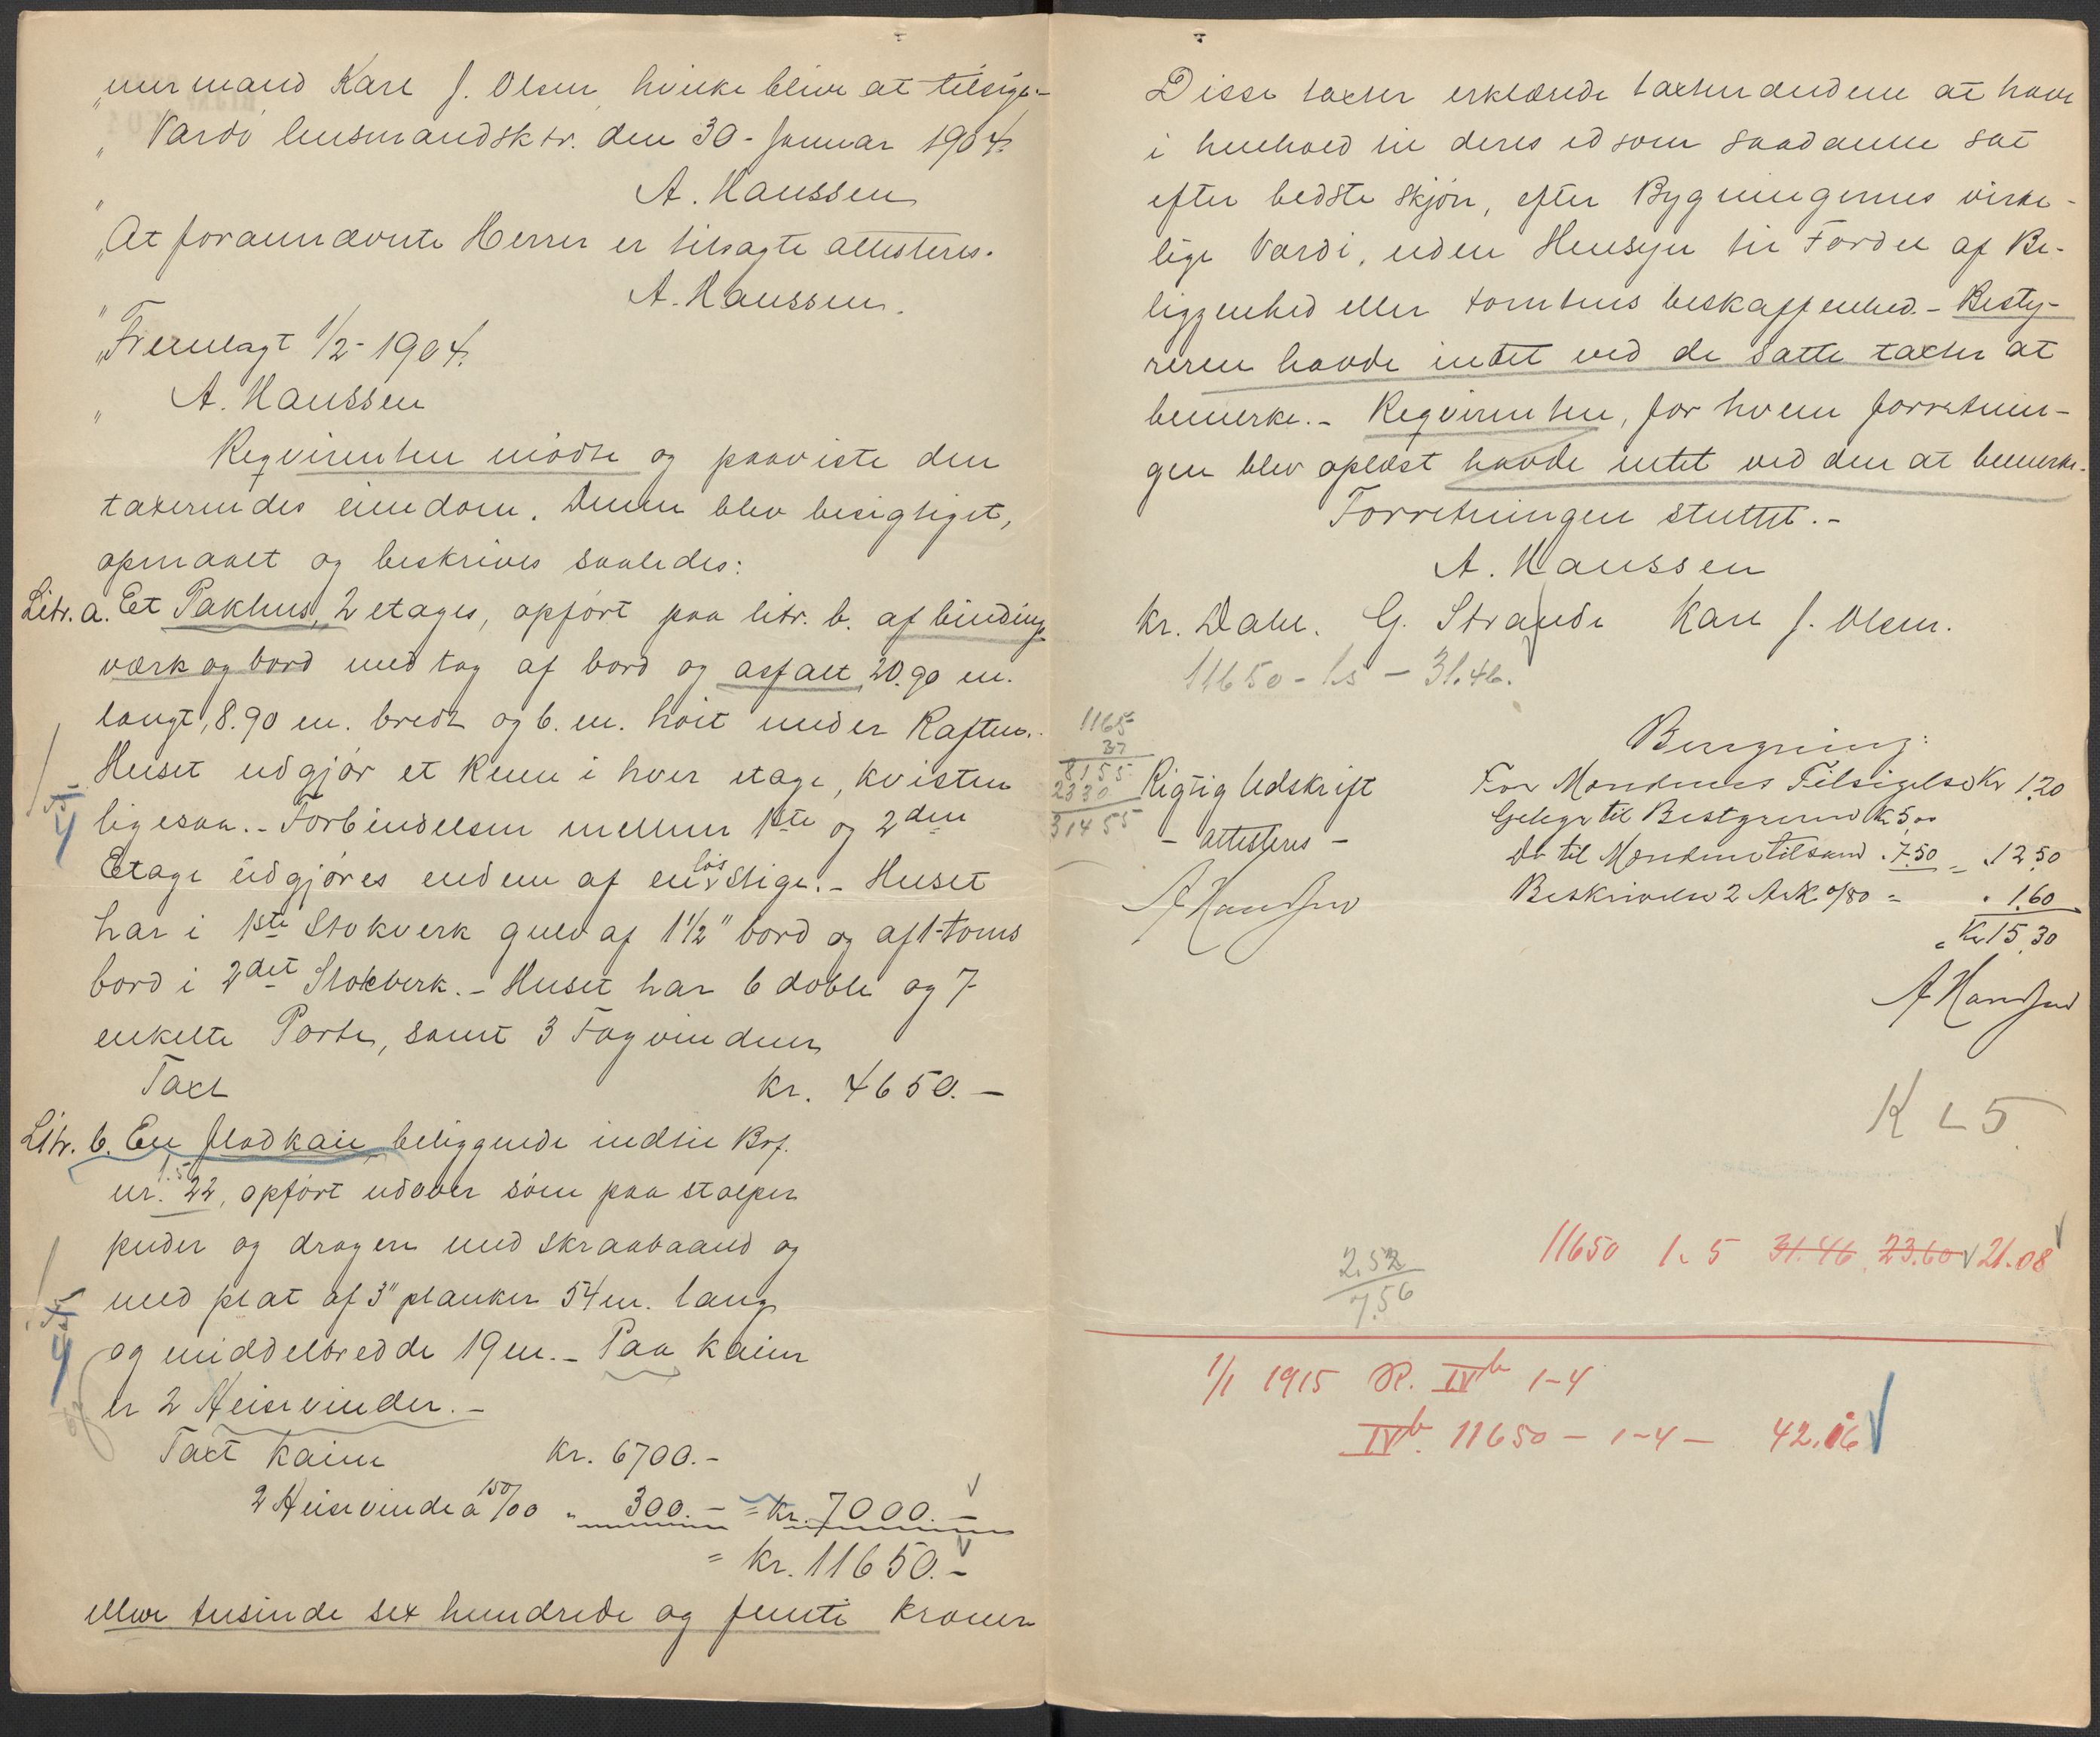 „mermand Karl J. Olsen, hvilke blive at tilsige.-
„ Vardö lensmandsktr. den 30-Januar 1904.
„ A. Hanssen
„At forannævnte Herrer er tilsagte attesteres.
A. Hanssen.
„Fremlagt 1/2-1904.
„ A. Hanssen
Reqvirenten mödte og paaviste den
taxerendes eiendom. Denne blev besigtiget,
opmaalt og beskrives saaledes:
Litr. a. Et Pakhus, 2 etages, opfört paa litr. b. af bindings
værk og bord med tag af bord og asfalt, 20.90 m.
langt, 8.90 m. bredt og 6. m. höit under Raften.
Huset udgjör et Rum i hver etage, kvisten
ligesaa.- Forbindelsen mellem 1ste og 2den
Etage udgjöres endem af en lös Stige.- Huset
har i 1ste Stokverk gulv af 1½" bord og af 1-toms
bord i 2det Stokverk.- Huset har 6 doble og 7
enkelte Porte, samt 3 Fag vinduer
Taxt kr. 4650.-
Litr. b. En flodkaie, beliggende indtil Brf.
nr. 22, opfört udover söen paa stolper
puder og dragere med skraabaand og
med plat af 3" planker 54 m. lang
og middelbredde 19 m.- Paa kaien
er 2 Heisevinder.-
Taxt kaien kr. 6700.-
2 Heisevinde à 150/00 „ 300.- = kr. 7000.-
= kr. 11650.-
elleve tusinde sex hundrede og femti kroner
Disse taxter erklærede taxtmændene at have
i henhold til deres ed som saadanne sat
efter bedste skjön, efter Bygningernes virke-
lige Værdi, uden Hensyn til Fordel af Be-
liggenhed eller tomtens beskaffenhed.- Besty-
reren havde intet ved de satte taxter at
bemerke.- Reqvirenten, for hvem forretnin-
gen blev oplæst havde intet ved den at bemerke.
Forretningen sluttet.-
A. Hanssen
Kr. Dahl. G. Strande Karl J. Olsen.
11650 - 1.5 - 31.46.
1165
27
8155
2330
31455
Rigtig Udskrift
- attesteres -
A Hanssen
Beregning:
For Mændenes Tilsigelse Kr 1.20
Gebyr til Bestyreren Kr 5,00
Do til Mændene tilsamm. „ 7.50 = „ 12.50
Beskrivelse 2 Ark o/80 = „ 1.60
= Kr 15.30
A Hanssen
K L 5
2.52
7.56
11650 1. 5 31.46 23.60 21.08
1/1 1915 R. IVb 1-4
IVb. 11650 - 1-4 - 42.16